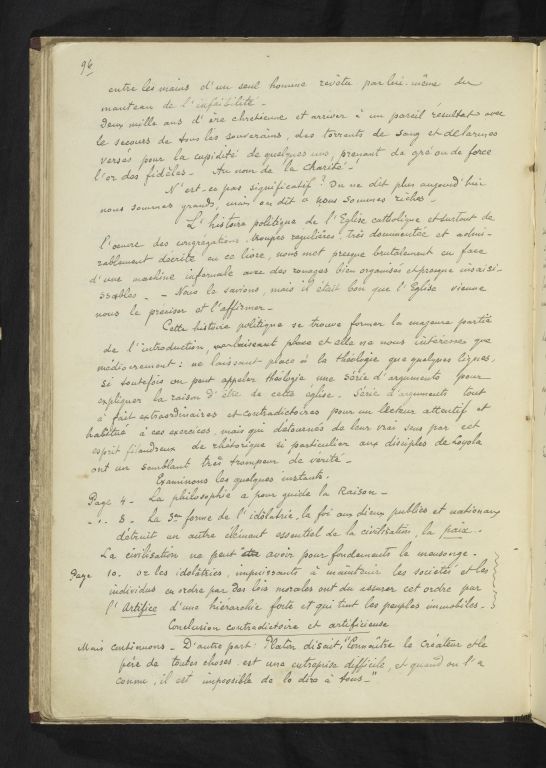 96
entre les mains d'un seul homme revêtu par lui-même du
manteau de l'infaibilité -
Deux mille ans d'ère chrétienne et arriver à un pareil résultat avec
le secours de tous les souverains, des torrents de sang et de larmes
versés pour la cupidité de quelques uns, prenant de gré ou de force
l'or des fidèles - Au nom de la Charité -
N'est-ce pas significatif? On ne dit plus aujourd'hui
nous sommes grands, mais on dit a nous sommes riches -
L'histoire politique de l'Eglise catholique et surtout de
l'oeuvre des congrégations, troupes regulières, très documentée et admi-
rablement décrite en ce livre, nous met presque brutalement en face
d'une machine infernale avec des rouages bien organisés et presque insaisi-
ssables - - Nous le savions, mais il était bon que l'Eglise vienne
nous le preciser et l'affirmer -
Cette histoire politique se trouve former la majeure partie
de l'introduction, place et elle ne nous intéresse que
médiocrement : ne laissant place à la théologie que quelques lignes,
si toutefois on peut appeler théologie une série d'arguments pour
expliquer la raison d'être de cette église - Série d'arguments tout
à fait extraordinaires et contradictoires pour un lecteur attentif et
habitué à ces exercices, mais qui détournés de leur vrai sens par cet
esprit filandreux de rhétorique si particulier aux disciples de Loyola
ont un semblant très trompeur de vérité -
Examinons les quelques instants.
Page 4 - La philosophie a pour guide la Raison -
- . 5 - La 3me forme de l'idolâtrie, la foi aux dieux publics et nationaux
détruit un autre élément essentiel de la civilisation, la paix -
La civilisation ne peut avoir pour fondements le mensonge -
Page 10 - or les idolâtries, impuissantes à maintenir les sociétés et les
individus en ordre par des lois morales ont du assurer cet ordre par
l'Artifice d'une hierarchie forte et qui tint les peuples immobiles -
Conclusion contradictoire et artificieuse
Mais continuons - D'autre part Platon disait, "Connaître le Créateur et le
père de toutes choses est une entreprise difficile, et quand on l'a
connu, il est impossible de le dire à tous -"